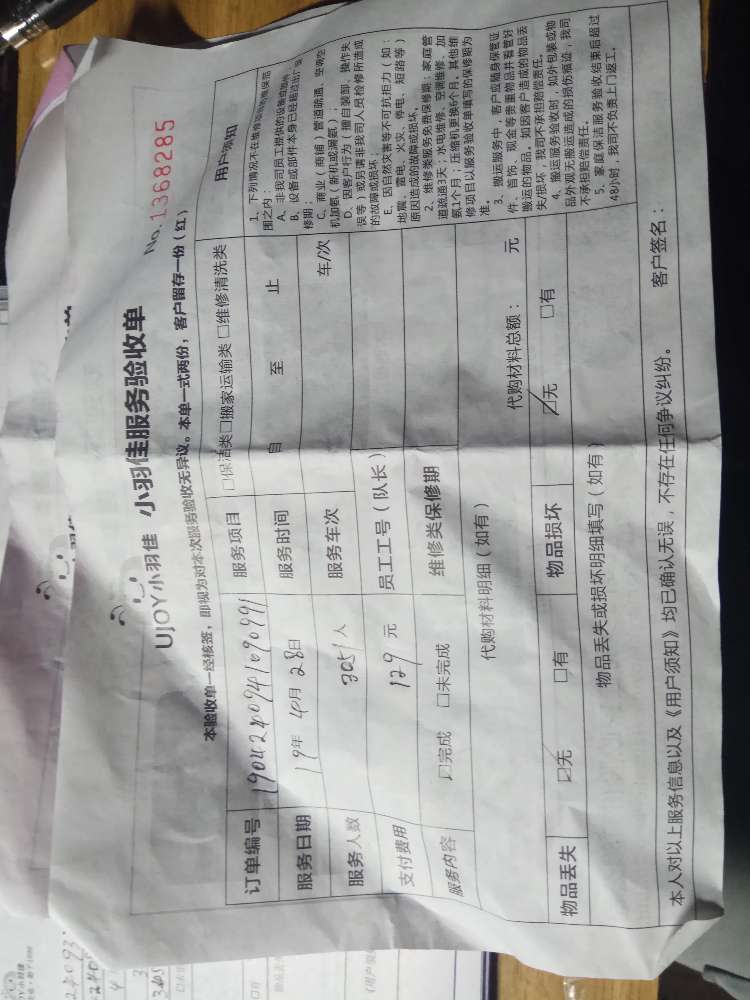 UJOY小羽佳 小羽佳服务验收单
No. 1368285
本验收单一经核签，即视为对本次服务验收无异议。本单一式两份，客户留存一份（红）
订单编号 1904240941090991 服务项目 □保洁类□搬家运输类 □维修清洗类
服务日期 19年 4月 28日 服务时间 自 至 止
服务人数 3051人 服务车次 车/次
支付费用 129 元 员工工号（队长）
服务内容 ☑完成 □未完成 维修类保修期
代购材料明细（如有） 代购材料总额： 元
物品丢失 ☑无 □有 物品损坏 ☑无 □有
物品丢失或损坏明细填写（如有）
用户须知
1、下列情况不在维修项目的维保范
围之内：
A、非我司员工提供的设备或部件；
B、设备或部件本身已经超过出厂保
修期；
C、商业（商铺）管道疏通、空调空
机加氨（新机或漏氨）；
D、因客户行为（擅自装卸、操作失
误等）或另请非我司人员检修所造成
的故障或损坏；
E、因自然灾害等不可抗拒力（如：
地震、雷电、火灾、停电、短路等）
原因造成的故障或损坏。
2、维修类服务免费保修期：家庭管
道疏通3天；水电维修、空调维修、加
氨1个月；压缩机更换6个月。其他维
修项目以服务验收单填写的保修期为
准。
3、搬运服务中，客户应随身保管证
件、首饰、现金等贵重物品并看管好
搬运的物品。如因客户造成的物品丢
失/损坏，我司不承担赔偿责任。
4、搬运服务验收时，如外包装或物
品外观无搬运造成的损伤痕迹，我司
不承担赔偿责任。
5、家庭保洁服务验收结束后超过
48小时，我司不负责上门返工。
本人对以上服务信息以及《用户须知》均已确认无误，不存在任何争议纠纷。 客户签名：